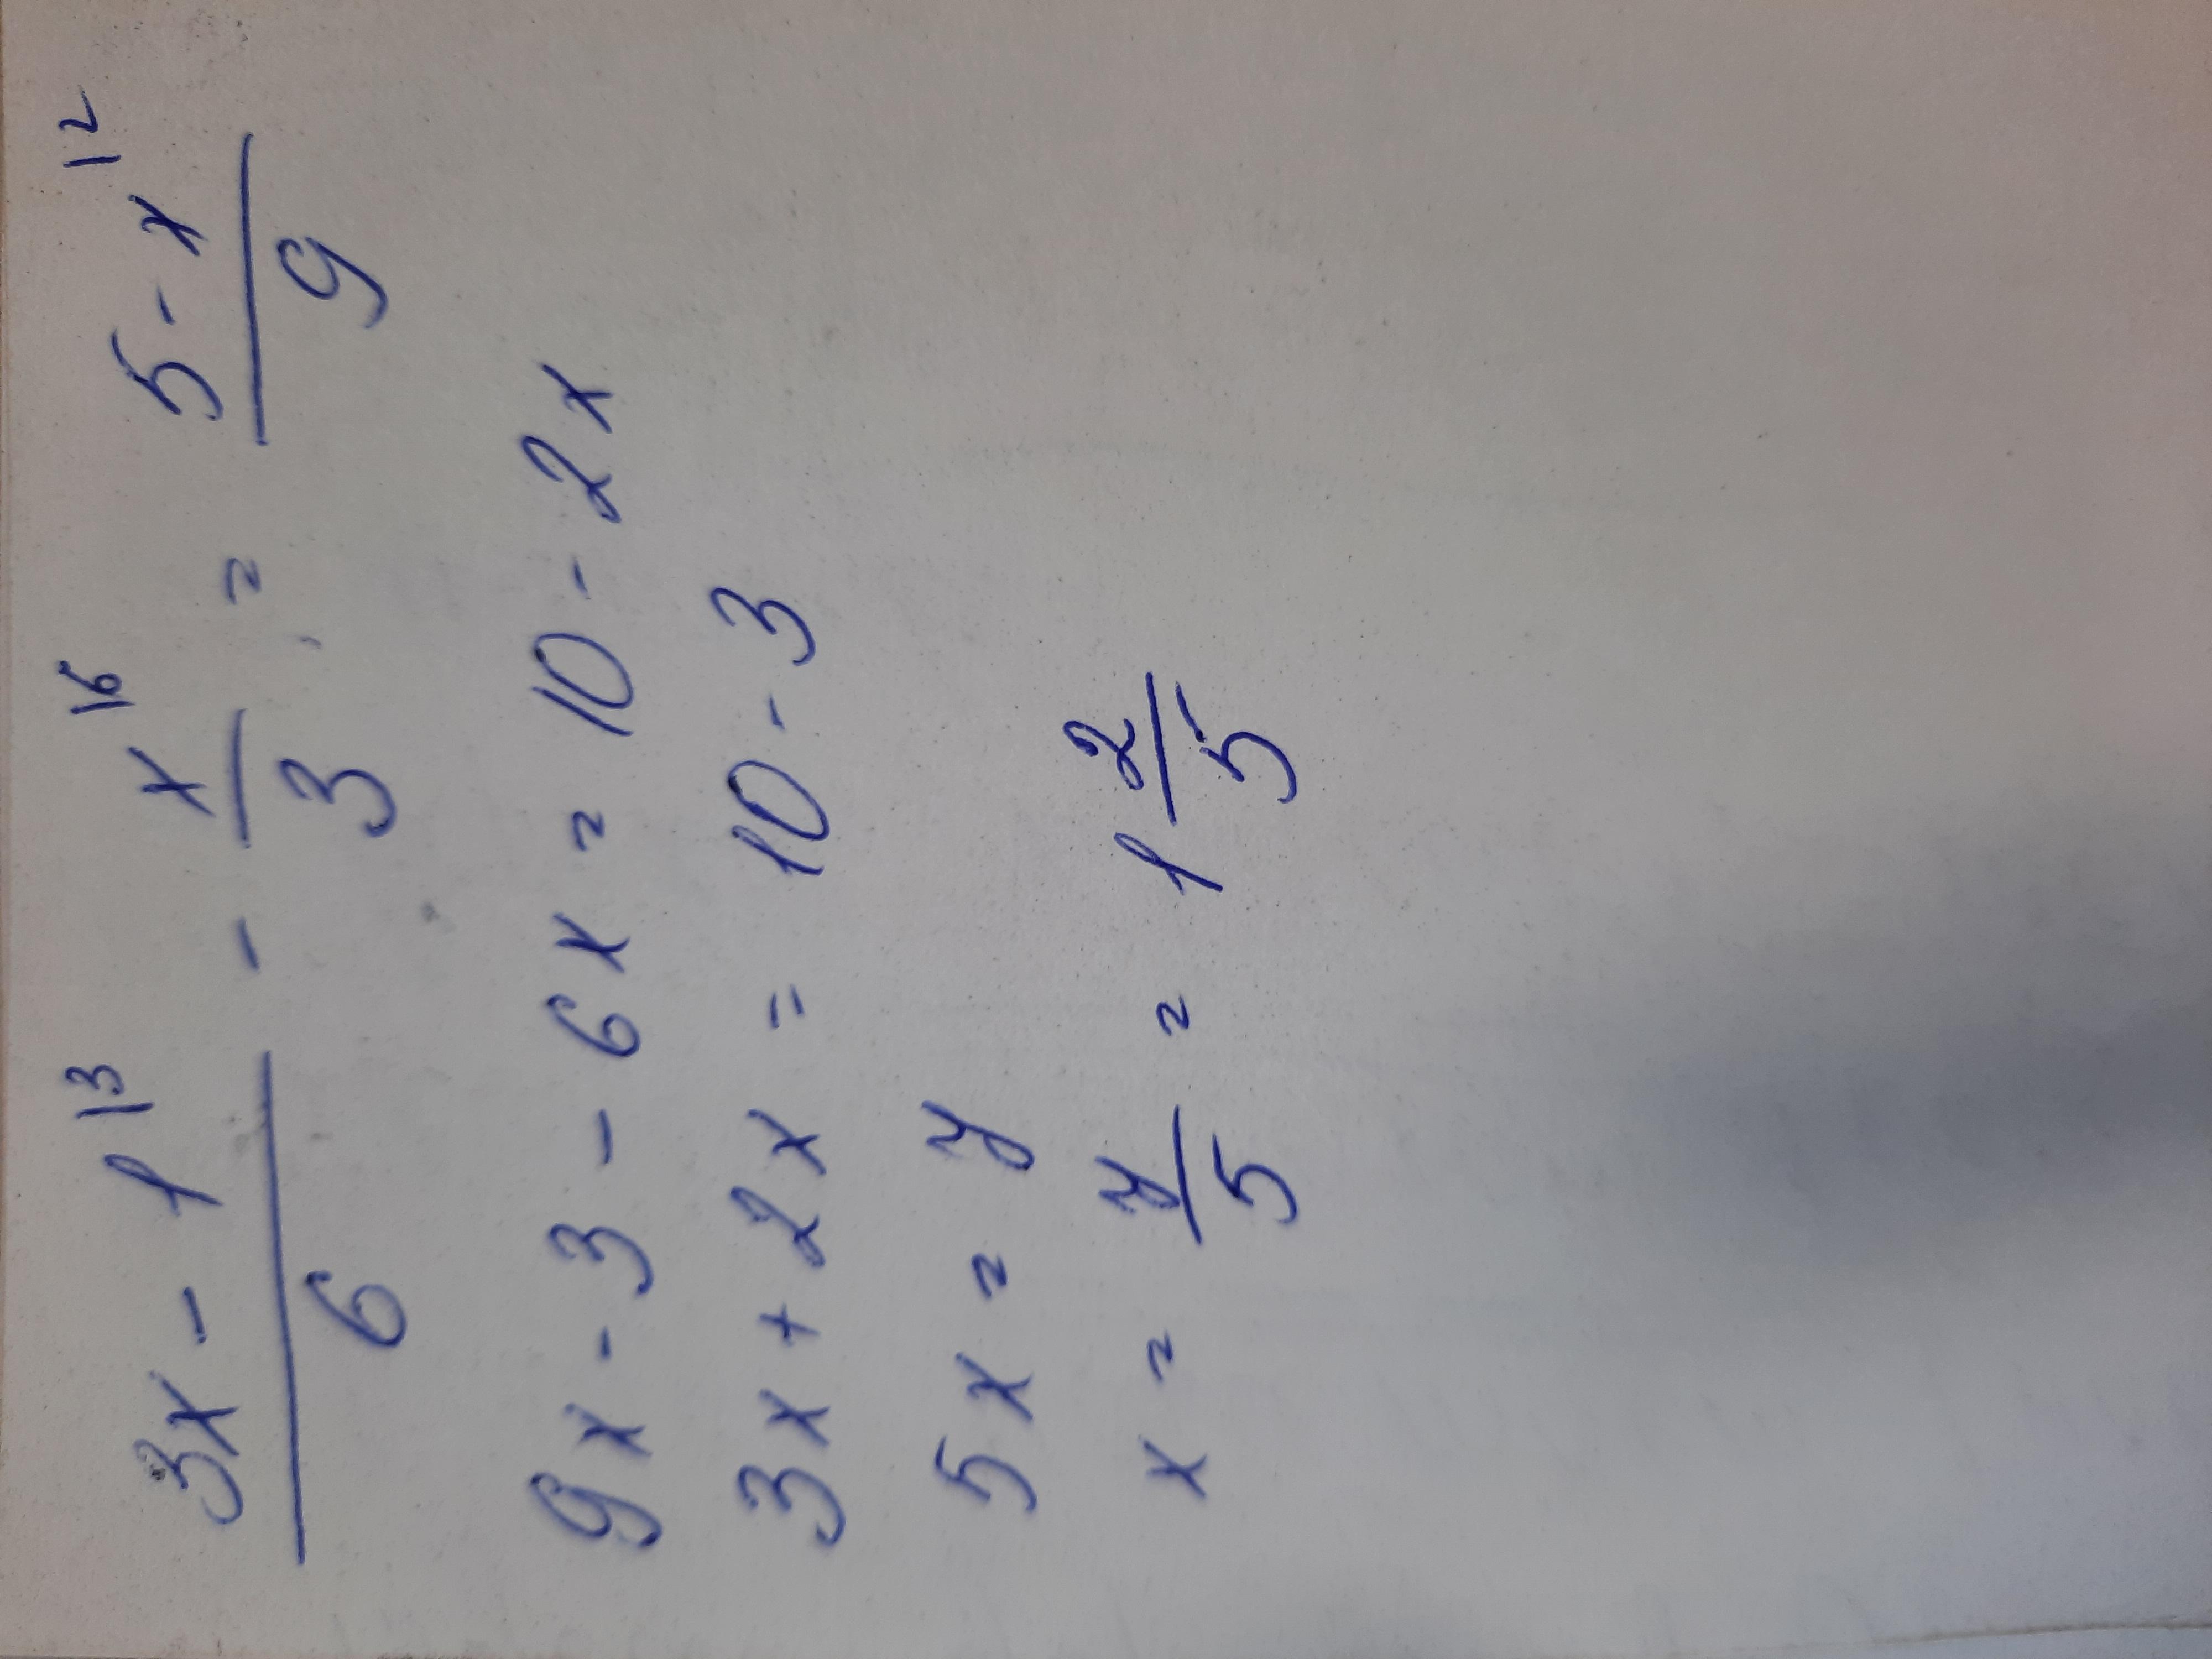 (3x - 1)/6 |3 - x/3 |6 = (5 - x)/9 |2
9x - 3 - 6x = 10 - 2x
3x + 2x = 10 - 3
5x = 7
x = 7/5 = 1 2/5